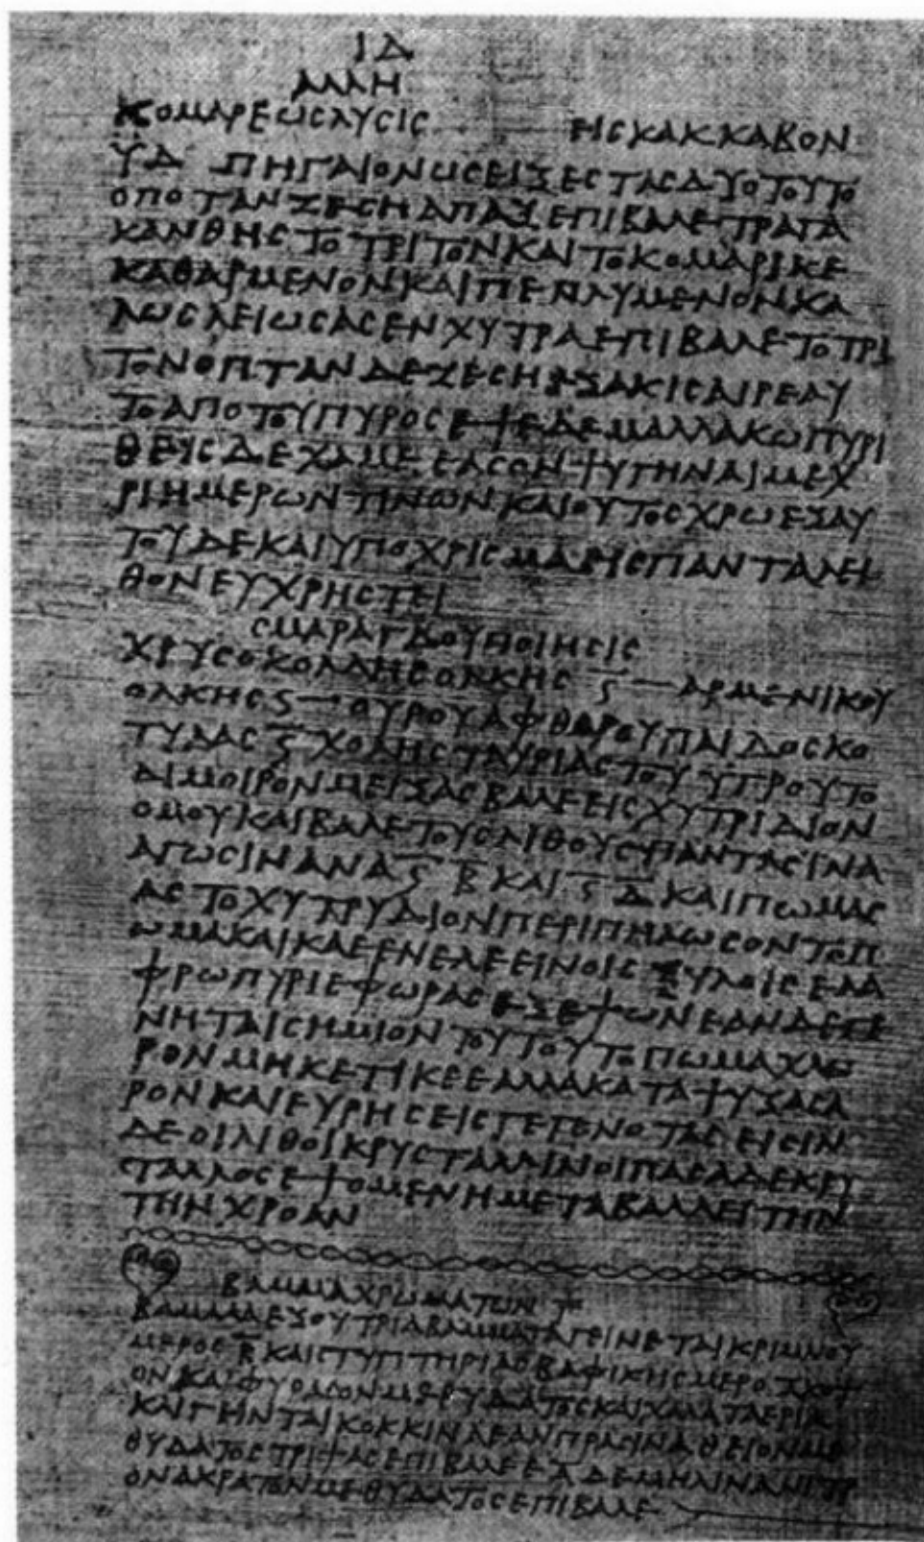 ΙΔ
ΑΛΛΗ
ΚΟΜΑΡΕΩΣ ΛΥΣΙΣ ΕΙΣ ΚΑΚΚΑΒΟΝ
ΥΔ ΠΗΓΑΙΟΝ ΩΣΕΙ ΞΕΣΤΑΣ ΔΥΟ ΤΟΥΤΟ
ΟΠΟΤΑΝ ΖΕΣΗ ΑΠΑΞ ΕΠΙΒΑΛΕ ΤΡΑΓΑ
ΚΑΝΘΗΣ ΤΟ ΤΡΙΤΟΝ ΚΑΙ ΤΟ ΚΟΜΑΡΙ ΚΕ
ΚΑΘΑΡΜΕΝΟΝ ΚΑΙ ΠΕΠΛΥΜΕΝΟΝ ΚΑ
ΛΩΣ ΛΕΙΩΣΑΣ ΕΝ ΧΥΤΡΑ ΕΠΙΒΑΛΕ ΤΟ ΤΡΙ
ΤΟΝ ΟΠΤΑΝ ΔΕ ΖΕΣΗ ΕΞΑΚΙΣ ΑΙΡΕ ΑΥ
ΤΟ ΑΠΟ ΤΟΥ ΠΥΡΟΣ ΕΨΕ ΔΕ ΜΑΛΛΑΚΩ ΠΥΡΙ
ΘΕΙΣ ΔΕ ΧΑΜΕ ΕΑΣΟΝ ΨΥΓΗΝΑΙ ΜΕΧ
ΡΙ ΗΜΕΡΩΝ ΤΙΝΩΝ ΚΑΙ ΟΥΤΟΣ ΧΡΩ ΕΞ ΑΥ
ΤΟΥ ΔΕ ΚΑΙ ΥΠΟΧΡΙΣΜΑ ΠΑΝΤΑ ΛΕΙ
ΘΟΝ ΕΥΧΡΗΣΤΕΙ
ΣΜΑΡΑΓΔΟΥ ΠΟΙΗΣΙΣ
ΧΡΥΣΟΚΟΛΛΗΣ ΟΛΚΗΣ Ϛ ΑΡΜΕΝΙΚΟΥ
ΟΛΚΗΣ Ϛ ΟΥΡΟΥ ΑΦΘΑΡΟΥ ΠΑΙΔΟΣ ΚΟ
ΤΥΛΑΣ Ϛ ΧΟΛΗΣ ΤΑΥΡΙΑΣ ΤΟΥ ΥΓΡΟΥ ΤΟ
ΔΙΜΟΙΡΟΝ ΜΕΙΞΑΣ ΒΑΛΕ ΕΙΣ ΧΥΤΡΙΔΙΟΝ
ΟΜΟΥ ΚΑΙ ΒΑΛΕ ΤΟΥΣ ΛΙΘΟΥΣ ΠΑΝΤΑΣ ΙΝΑ
ΑΓΩΣΙΝ ΑΝΑ Ϛ Β ΚΑΙ Ϛ Δ ΚΑΙ ΠΩΜΑΣ
ΑΣ ΤΟ ΧΥΤΡΥΔΙΟΝ ΠΕΡΙΠΗΛΩΣΟΝ ΤΟ Π
ΩΜΑ ΚΑΙ ΚΑΕ ΕΝ ΕΛΕΕΙΝΟΙΣ ΞΥΛΟΙΣ ΕΛΑ
ΦΡΩ ΠΥΡΙ ΕΦ ΩΡΑΣ Ϛ ΕΨΩΝ ΕΑΝ ΔΕ ΓΕ
ΝΗΤΑΙ ΣΗΜΙΟΝ ΤΟΥΤΟΥ ΤΟ ΠΩΜΑ ΧΛΩ
ΡΟΝ ΜΗΚΕΤΙ ΚΕΕ ΑΛΛΑ ΚΑΤΑΨΥΞΑΣ Α
ΡΟΝ ΚΑΙ ΕΥΡΗΣΕΙΣ ΓΕΓΕΝΟΤΑΣ ΕΙΣΙΝ
ΔΕ ΟΙ ΛΙΘΟΙ ΚΡΥΣΤΑΛΛΙΝΟΙ ΠΑΣΑ ΔΕ ΚΡΥ
ΣΤΑΛΛΟΣ ΕΨΟΜΕΝΗ ΜΕΤΑΒΑΛΛΕΙ ΤΗΝ
ΤΗΝ ΧΡΟΑΝ
ΒΑΜΜΑ ΧΡΩΜΑΤΩΝ Γ
ΒΑΜΜΑ ΕΞ ΟΥ ΤΡΙΑ ΒΑΜΜΑΤΑ ΓΕΙΝΕΤΑΙ ΚΡΙΜΝΟΥ
ΜΕΡΟΣ Β ΚΑΙ ΣΤΥΠΤΗΡΙΑΣ ΒΑΦΙΚΗΣ ΜΕΡΟΣ Α ΚΟΨ
ΟΝ ΚΑΙ ΦΥΡΑΣΟΝ ΜΕΘ ΥΔΑΤΟΣ ΚΑΙ ΧΑΛΑ ΤΑ ΕΡΙΑ
ΚΑΙ ΓΗΝΤΑΙ ΚΟΚΚΙΝΑ ΕΑΝ ΠΡΑΣΙΝΑ ΘΕΙΟΝ ΜΕ
Θ ΥΔΑΤΟΣ ΤΡΙΨΑΣ ΕΠΙΒΑΛΕ ΕΑ ΔΕ ΜΗΛΙΝΑ ΝΙΤΡ
ΟΝ ΑΚΡΑΤΟΝ ΜΕΘ ΥΔΑΤΟΣ ΕΠΙΒΑΛΕ